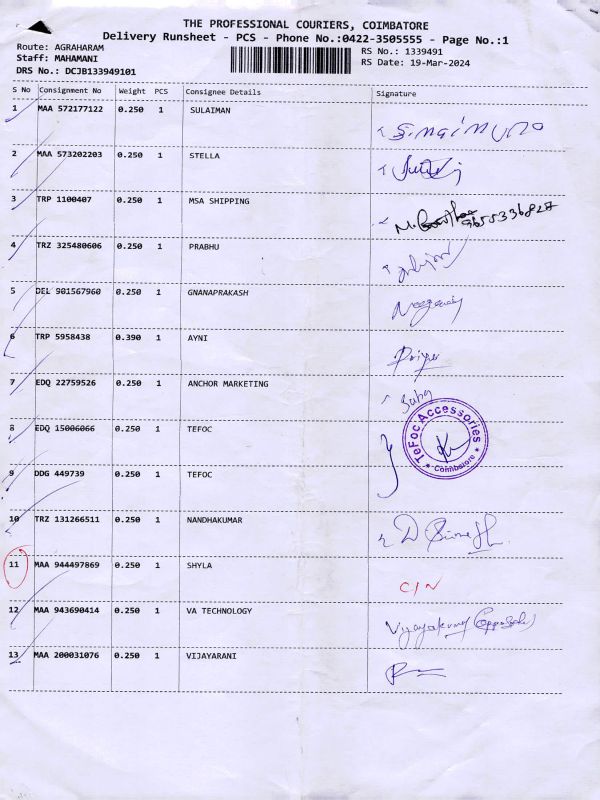 THE PROFESSIONAL COURIERS, COIMBATORE
Delivery Runsheet - PCS - Phone No.:0422-3505555 - Page No.:1
Route: AGRAHARAM RS No.: 1339491
Staff: MAHAMANI RS Date: 19-Mar-2024
DRS No.: DCJB133949101
S No Consignment No Weight PCS Consignee Details Signature
1 MAA 572177122 0.250 1 SULAIMAN
2 MAA 573202203 0.250 1 STELLA
3 TRP 1100407 0.250 1 MSA SHIPPING 9655336827
4 TRZ 325480606 0.250 1 PRABHU
5 DEL 901567960 0.250 1 GNANAPRAKASH
6 TRP 5958438 0.390 1 AYNI Priya
7 EDQ 22759526 0.250 1 ANCHOR MARKETING Babu
8 EDQ 15006066 0.250 1 TEFOC
TeFoc Accessories
Coimbatore
9 DDG 449739 0.250 1 TEFOC
10 TRZ 131266511 0.250 1 NANDHAKUMAR
11 MAA 944497869 0.250 1 SHYLA C/N
12 MAA 943690414 0.250 1 VA TECHNOLOGY Vijayakumar
13 MAA 200031076 0.250 1 VIJAYARANI